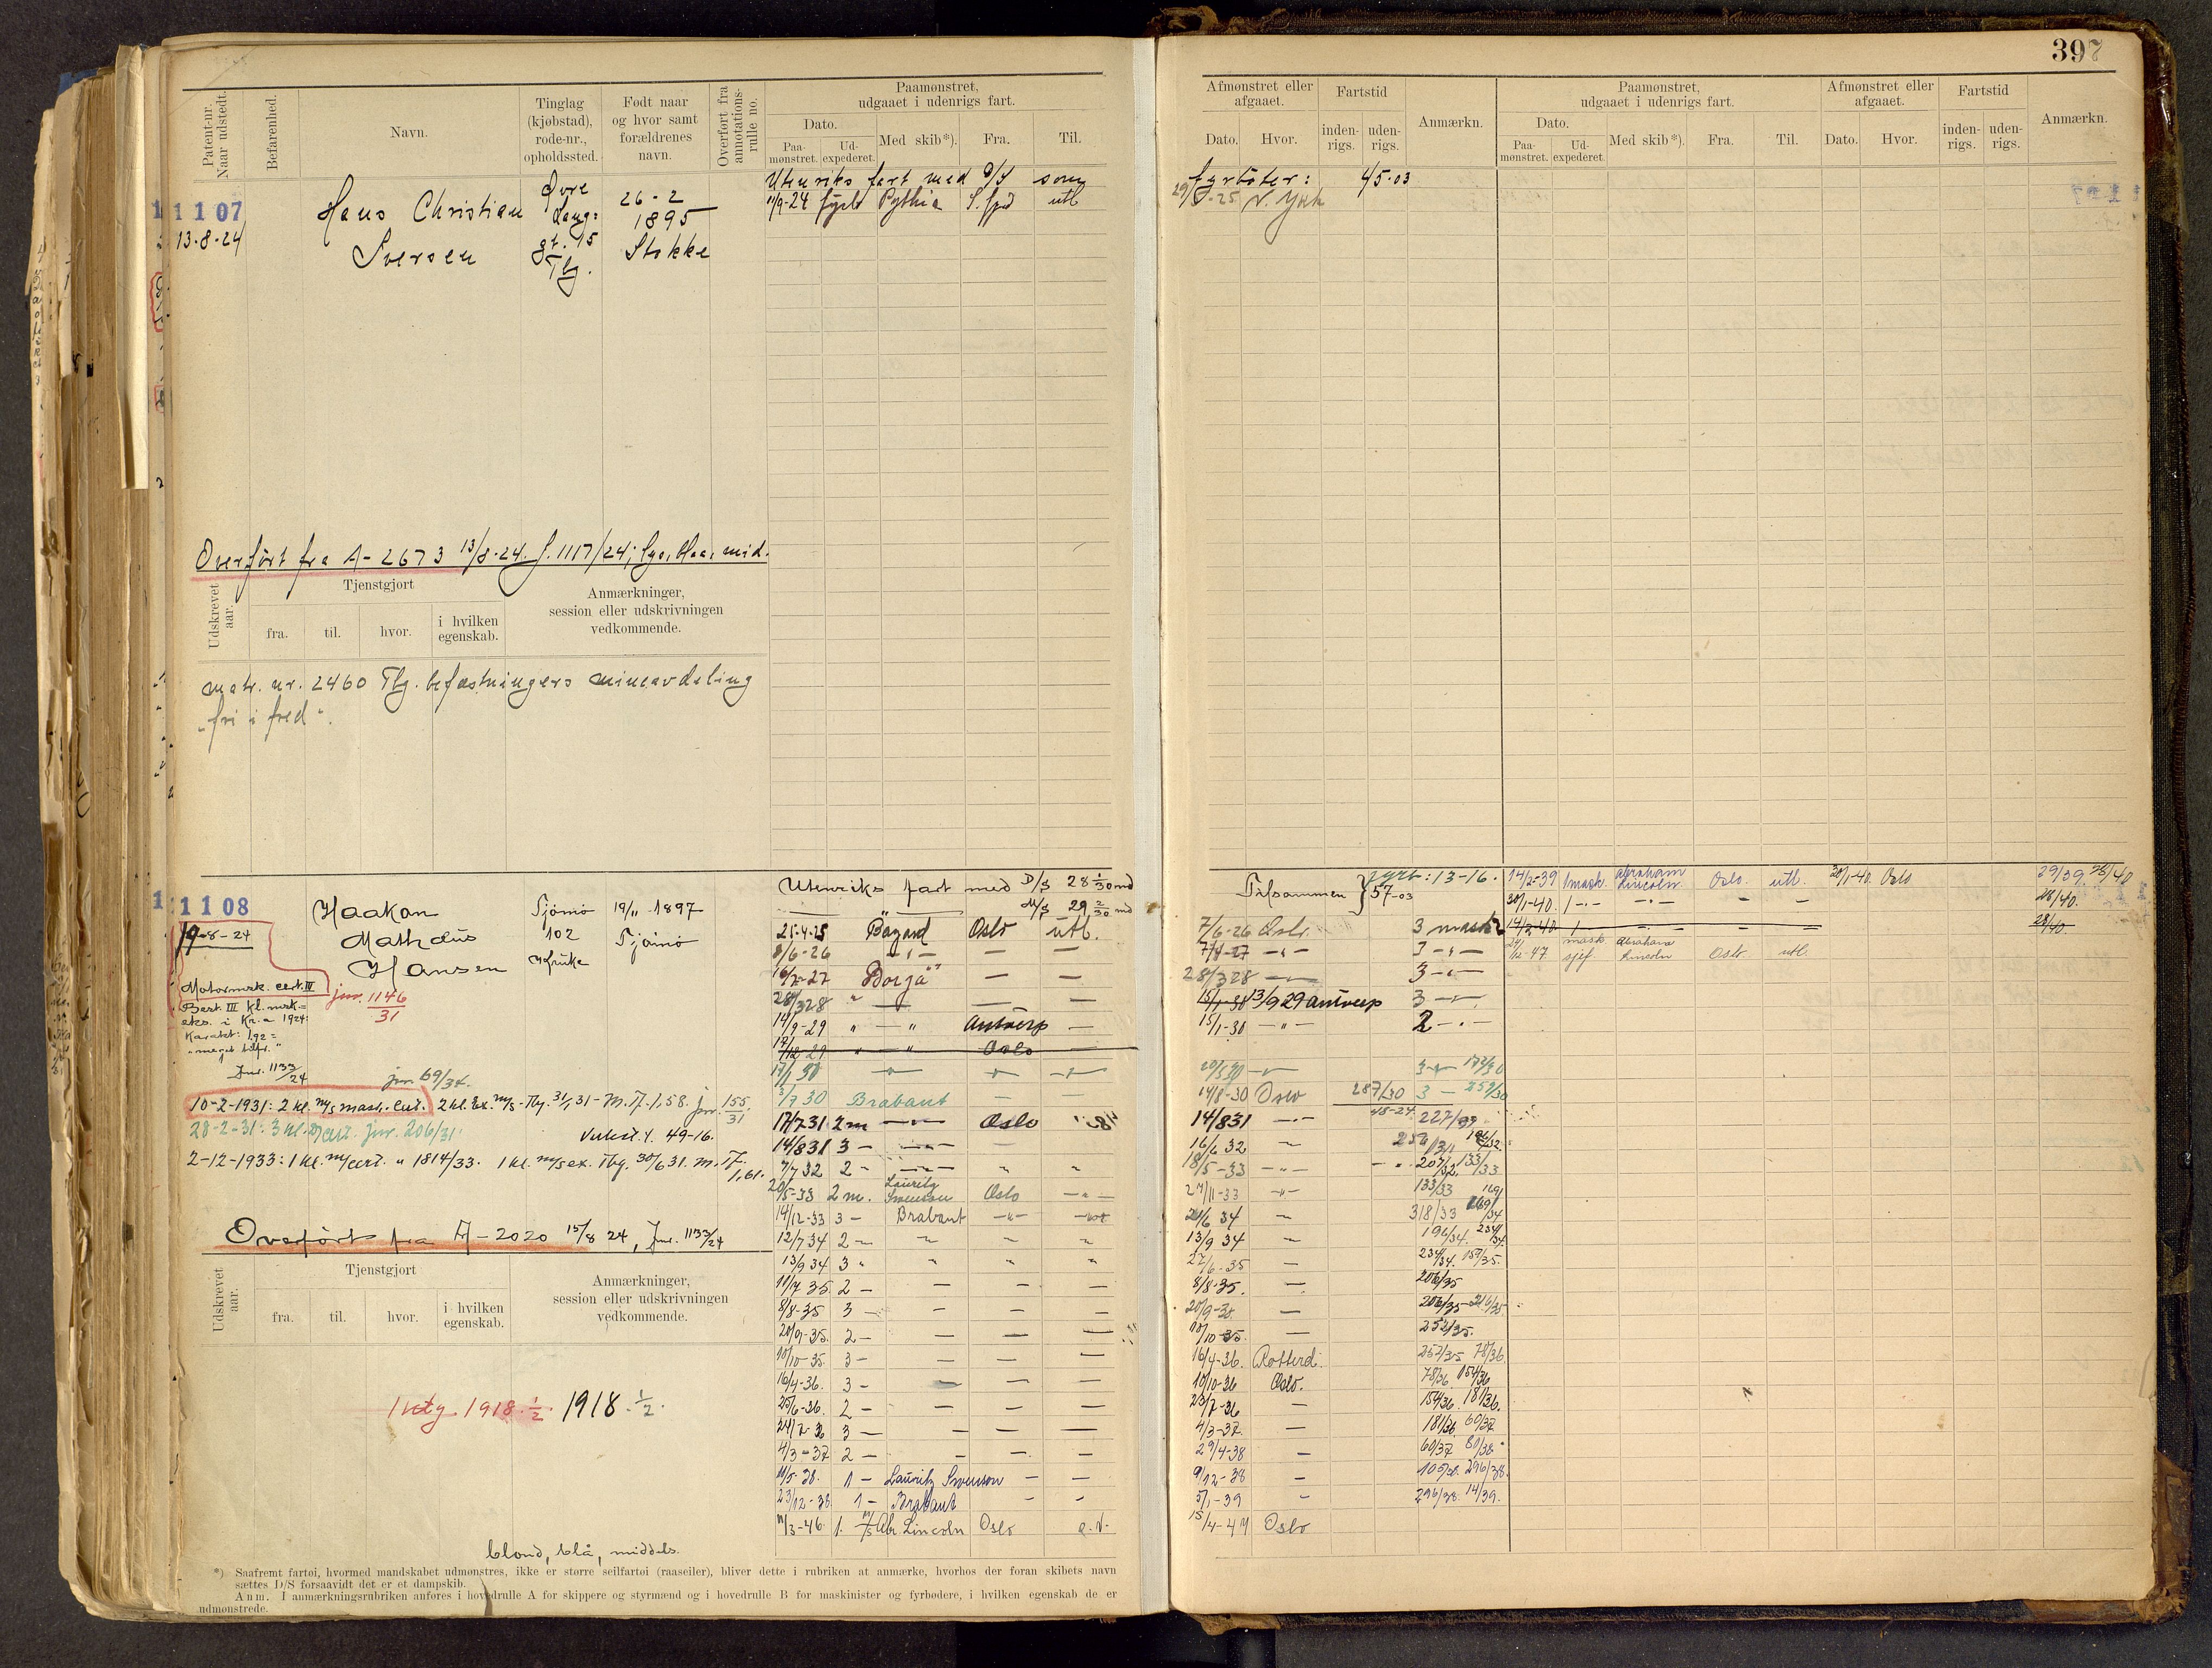 397
Patent-nr. Naar udstedt.
Befarenhed.
Navn.
Tinglag (kjøbstad), rode-nr., opholdssted.
Født naar og hvor samt forældrenes navn.
Overført fra annotations-rulle no.
Paamønstret, udgaaet i udenrigs fart.
Dato.
Paa-mønstret.
Ud-expederet.
Med skib*).
Fra.
Til.
Afmønstret eller afgaaet.
Dato.
Hvor.
Fartstid
inden-rigs.
uden-rigs.
Anmærkn.
Paamønstret, udgaaet i udenrigs fart.
Dato.
Paa-mønstret.
Ud-expederet.
Med skib*).
Fra.
Til.
Afmønstret eller afgaaet.
Dato.
Hvor.
Fartstid
inden-rigs.
uden-rigs.
Anmærkn.
1107
13-8-24
Hans Christian
Iversen
Øvre
Lang:
gt. 15
Tbg.
26-2
1895
Stokke
Utenriks fart med D/S som
fyrbøter: 45-03
11/9-24 fyrb Pythia S.fjd utl
N. York
Overført fra A-2673 13/8-24. J. 1117/24; lys, blaa, mid.
Udskrevet aar.
Tjenstgjort
fra.
til.
hvor.
i hvilken egenskab.
Anmærkninger, session eller udskrivningen vedkommende.
matr. nr. 2460 Tbg. befæstningers mineavdeling
"fri i fred".
1108
Haakan
Mathæus
Hansen
Tjømø
102
Kruke
19/11-1897
Tjømø
Motormsk. cert. III
jnr. 1146/31
Best. III kl. msk=
eks. i Kr.a 1924:
Karakt: 1,92=
"meget tilfr."
Jnr. 1133/24
jnr. 69/34.
10-2-1931: 2 kl. m/s mask. cert. 2 kl. Ex. m/s - Tbg. 31/1 31 - M. T. 1,58. jnr. 155/31
28-2-31: 3 kl. D/cert. jnr. 206/31.
2-12-1933: 1 kl. m/cert. " 1814/33. 1 kl. m/s ex. Tbg. 30/6 31. M. T. 1,61.
Overført fra A-2020 15/8 24, Jnr. 1133/24
Utenriks fart med D/S 28 1/30 md
" M/S 29 2/30 md
Tilsammen } 57-03
fyrb: 13-16.
25-4-25 Bayard Oslo utl.
8/6-26 - " -
16/7-27 Borgå — —
28/3 28 " — — —
14/9-29 " — " Antwerp —
17/12 29 " — " Oslo —
17/1 30
3/7 30 Brabant — —
17/7 31 2 m —"— Oslo
14/8 31 3 — —"— —
7/7 32 2 — —"— " "
20/5-33 2 m. Lauritz Swenson Oslo —"—
14/12-33 3 — Brabant —"—
12/7 34 2 — " " "
13/9 34 3 " " " "
11/7 35 2 — — — —
8/8-35 3 — — — —
20/9-35. 2 — — — —
10/10-35. 3 — — — —
16/4-36. 3 — — — —
25/6-36. 2 — — — —
24/7-36 3 — — — —
4/3-37 2 — — — —
11/5-38. 1 — Lauritz Swenson — —
23/12-38 1 — Brabant — —
11/3-46 1. M/S Abr. Lincoln Oslo e.v.
7/6-26 Oslo 3 mask
7/7-27 —"— 3 —"—
28/3 28 —"— 3 —"—
15/1-30 13/9 29 Antwerp 3 —"—
15/1-30 —"— 2 —"—
20/5 30 —"— 3 —"— 172/30
14/8-30 Oslo 287/30 3 — 259/30
14/8 31 —"— 48-24
16/6 32 "
18/5-33 —"— 207/32. 133/33
27/11-33 —"— 133/33
20/6 34 " 318/33 169/34
13/9 34 " 196/34. 234/34.
27/6-35 — 234/34. 159/35.
8/8-35. — 206/35
20/9-35. — 206/35 216/35
10/10-35. — 252/35.
16/4-36. Rotterd. 252/35 78/36.
10/10-36 Oslo. 78/36 154/36
23/7-36 — 154/36. 181/36.
4/3-37. — 181/36. 60/37
29/4-38 — 60/37 80/38.
9/12-38 — 105/38. 296/38.
5/1-39 — 296/38 14/39.
15/4-47 Oslo
14/2-39 1 mask. Abraham Lincoln Oslo. utl. 20/1-40. Oslo 29/39.
30/1-40. 1 —"— —"— — — 28/40.
14/2-40. 1 — — — 28/40
24/12-47 mask sjef. Abraham Lincoln Oslo utl.
Udskrevet aar.
Tjenstgjort
fra.
til.
hvor.
i hvilken egenskab.
Anmærkninger, session eller udskrivningen vedkommende.
1918. 1/2. 1918. 1/2.
blond, blå, middels.
*) Saafremt fartøi, hvormed mandskabet udmønstres, ikke er større seilfartøi (raaseiler), bliver dette i rubriken at anmærke, hvorhos der foran skibets navn
sættes D/S forsaavidt det er et dampskib.
Anm. I anmærkningsrubriken anføres i hovedrulle A for skippere og styrmænd og i hovedrulle B for maskinister og fyrbødere, i hvilken egenskab de er
udmønstrede.